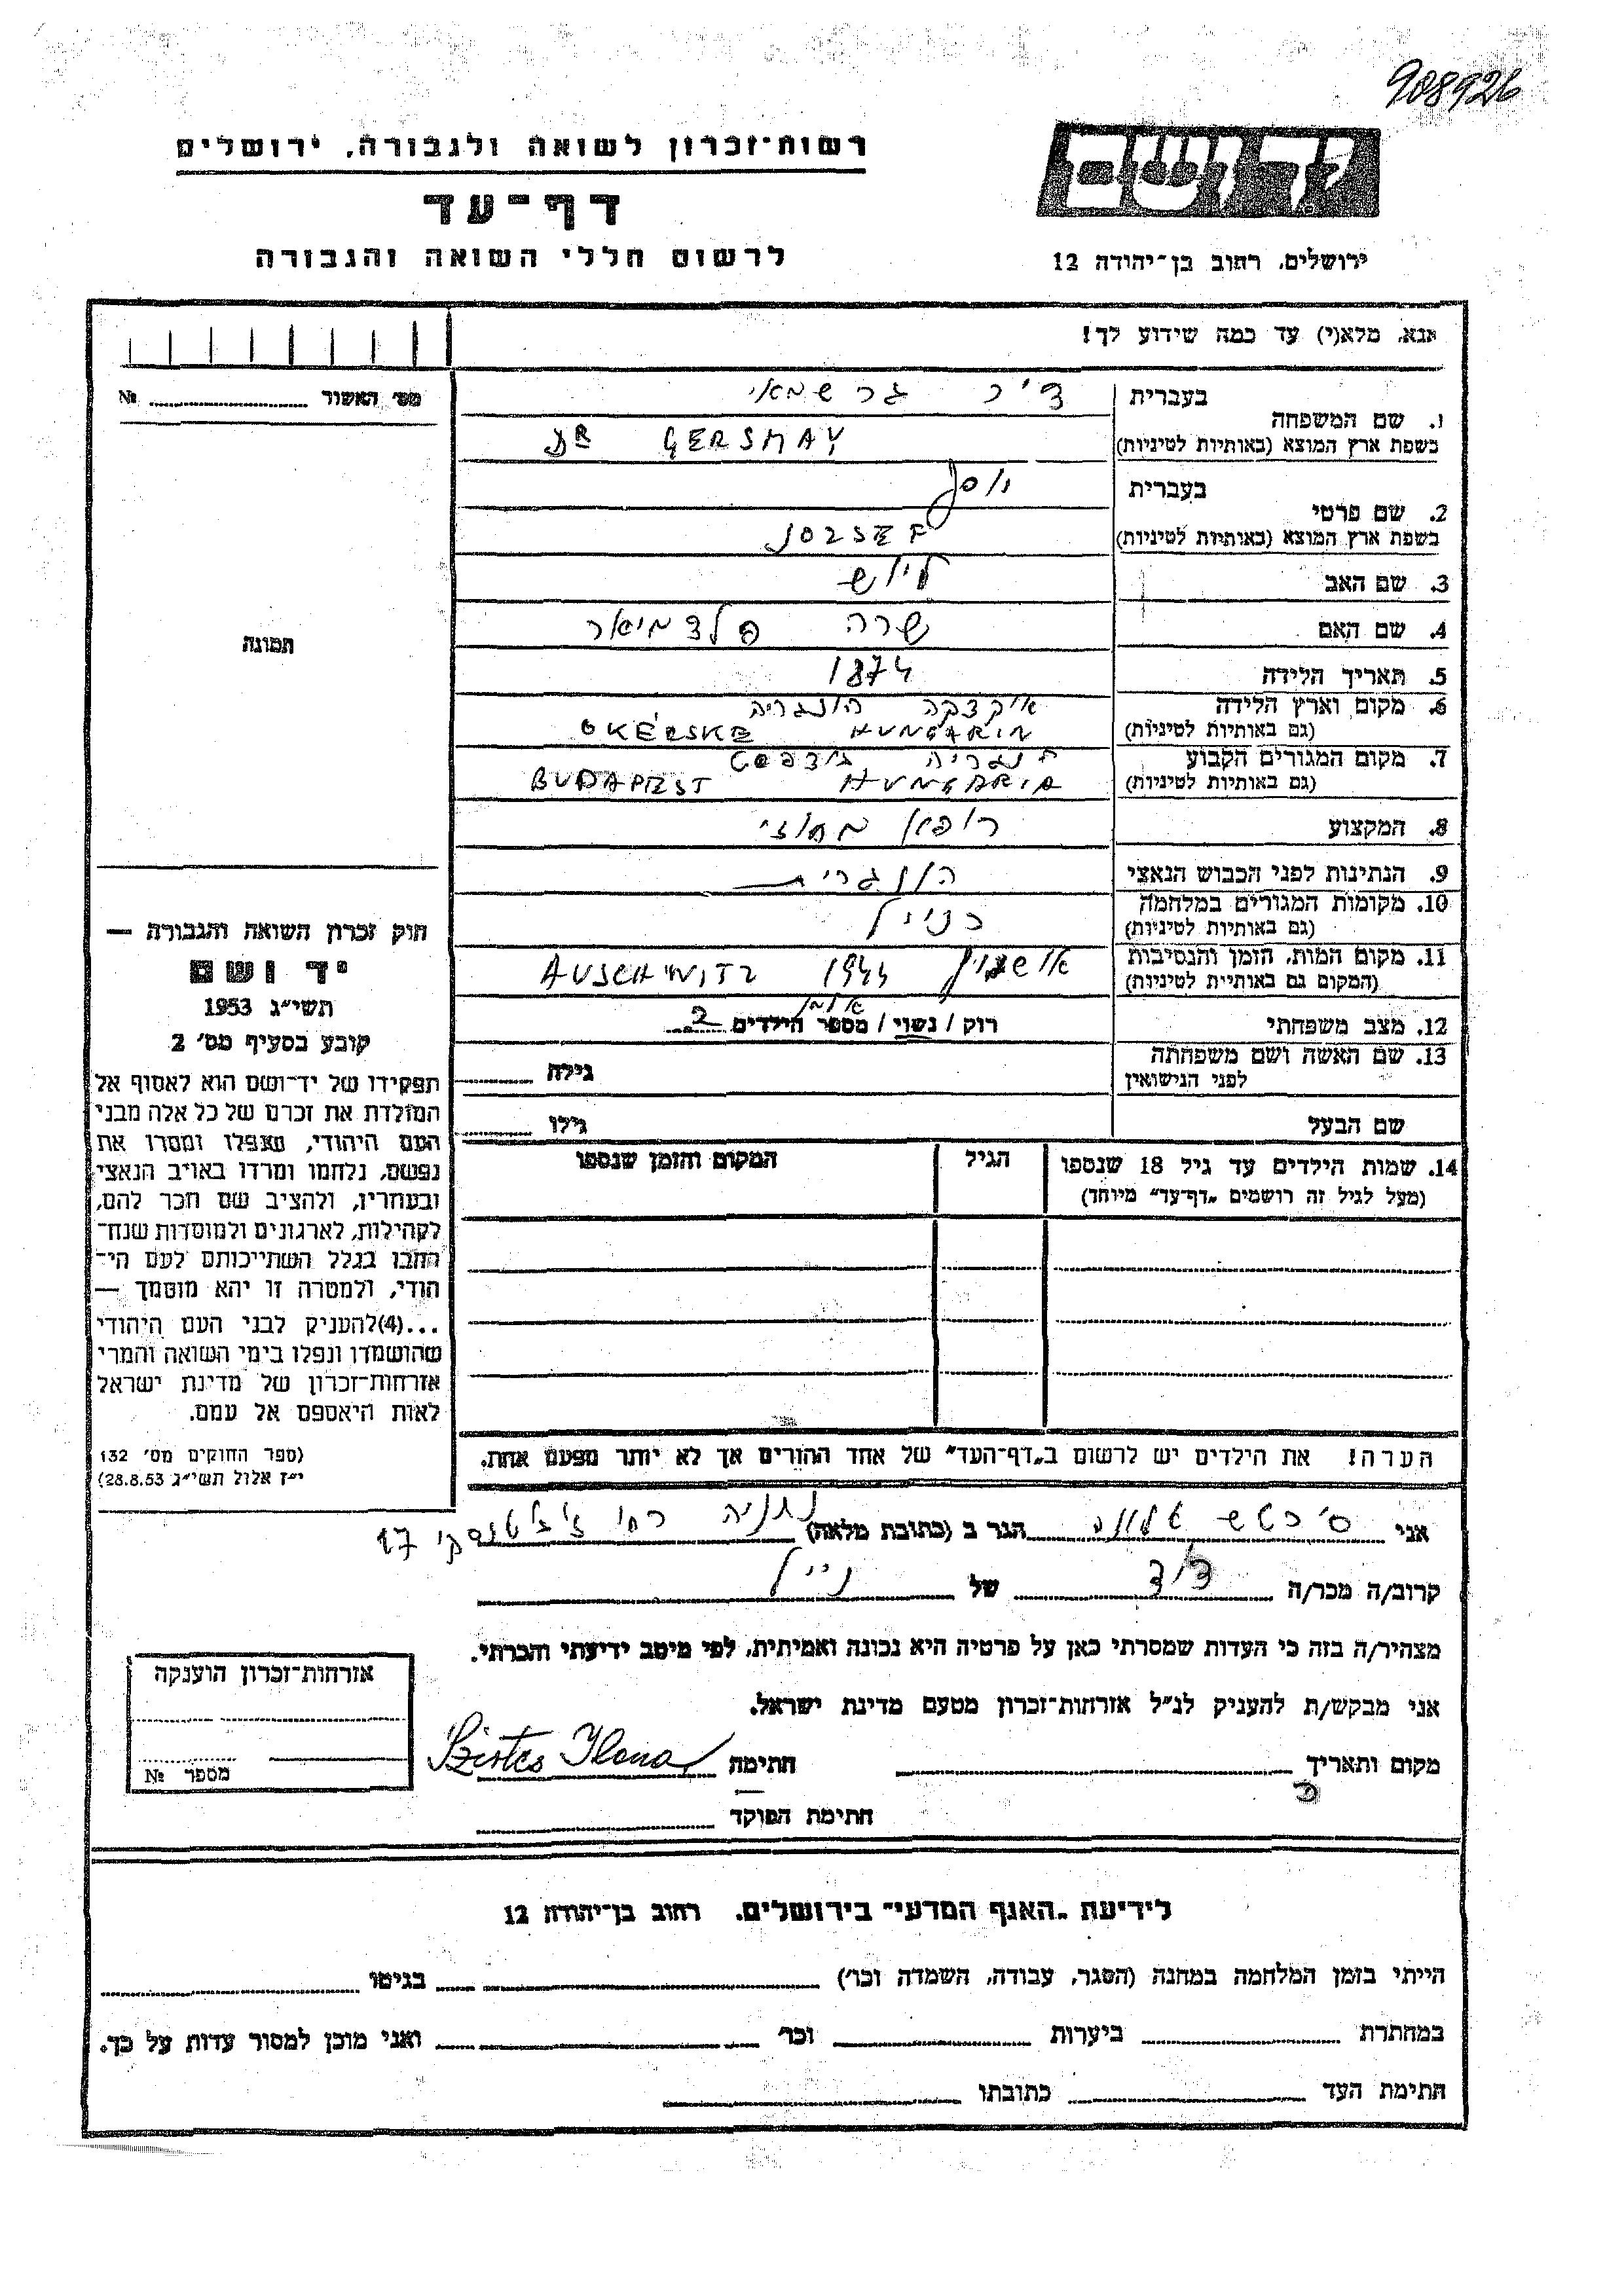 908926
רשות־זכרון לשואה ולגבורה, ירושלים
דף־עד
לרשום חללי השואה והגבורה
יד ושם
ירושלים, רחוב בן־יהודה 12
אנא, מלא(י) עד כמה שידוע לך!
מס׳ האשור № 
תמונה
1. שם המשפחה בעברית ד״ר גרשמאי
בשפת ארץ המוצא (באותיות לטיניות) DR GERSMAY
2. שם פרטי בעברית יוסף
בשפת ארץ המוצא (באותיות לטיניות) JOZSEF
3. שם האב
4. שם האם שרה
5. תאריך הלידה 1874
6. מקום וארץ הלידה הונגריה
(גם באותיות לטיניות) OKÉRSKE HUNGARIN
7. מקום המגורים הקבוע בודפסט
(גם באותיות לטיניות) BUDAPEST HUNGARIA
8. המקצוע רופא מחוזי
9. הנתינות לפני הכבוש הנאצי הונגרית
10. מקומות המגורים במלחמה כנ״ל
(גם באותיות לטיניות)
11. מקום המות, הזמן והנסיבות אושוויץ 1944 AUSCHWITZ
(המקום גם באותיות לטיניות)
12. מצב משפחתי רוק / נשוי / מספר הילדים 2
אלמן
13. שם האשה ושם משפחתה גילה
לפני הנישואין
שם הבעל גילו
14. שמות הילדים עד גיל 18 שנספו הגיל המקום והזמן שנספו
(מעל לגיל זה רושמים „דף־עד״ מיוחד)
הערה! את הילדים יש לרשום ב„דף־העד״ של אחד ההורים אך לא יותר מפעם אחת.
חוק זכרון השואה והגבורה —
יד ושם
תשי״ג 1953
קובע בסעיף מס׳ 2
תפקידו של יד־ושם הוא לאסוף אל
המולדת את זכרם של כל אלה מבני
העם היהודי, שנפלו ומסרו את
נפשם, נלחמו ומרדו באויב הנאצי
ובעוזריו, ולהציב שם וזכר להם,
לקהילות, לארגונים ולמוסדות שנח־
רבו בגלל השתייכותם לעם הי־
הודי, ולמטרה זו יהא מוסמך —
...(4)להעניק לבני העם היהודי
שהושמדו ונפלו בימי השואה והמרי
אזרחות־זכרון של מדינת ישראל
לאות היאספם אל עמם.
(ספר החוקים מס׳ 132
י״ז אלול תשי״ג 28.8.53)
אני סירטש אילונה הגר ב (כתובת מלאה) נתניה רח׳ ז׳בוטינסקי 17
קרוב/ה מכר/ה דוד של נ״ל
מצהיר/ה בזה כי העדות שמסרתי כאן על פרטיה היא נכונה ואמיתית, לפי מיטב ידיעתי והכרתי.
אני מבקש/ת להעניק לנ״ל אזרחות־זכרון מטעם מדינת ישראל.
מקום ותאריך חתימה Szirtes Ilona
חתימת הפוקד
אזרחות־זכרון הוענקה
מספר №
לידיעת „האגף המדעי״ בירושלים, רחוב בן־יהודה 12
הייתי בזמן המלחמה במחנה (הסגר, עבודה, השמדה וכו׳) בגיטו
במחתרת ביערות וכו׳ ואני מוכן למסור עדות על כך.
חתימת העד כתובתו